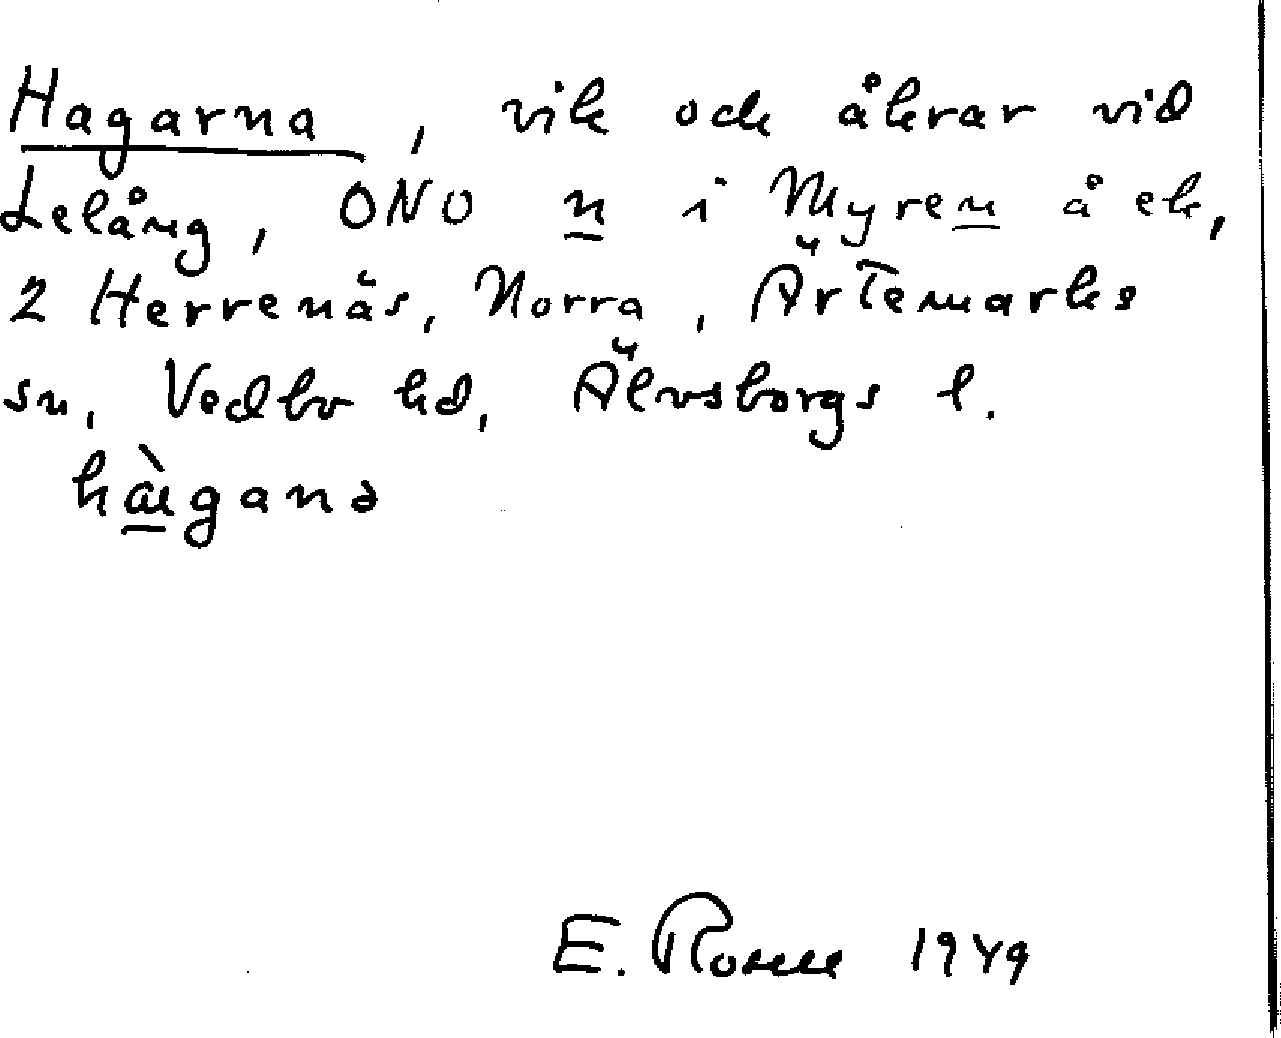 Hagarna, vik och åkrar vid
Lelång, ONO n i Myren å ek,
2 Herrenäs, Norra, Ärtemarks
sn, Vedbo hd, Älvsborgs l.
hàgana
E. 1949